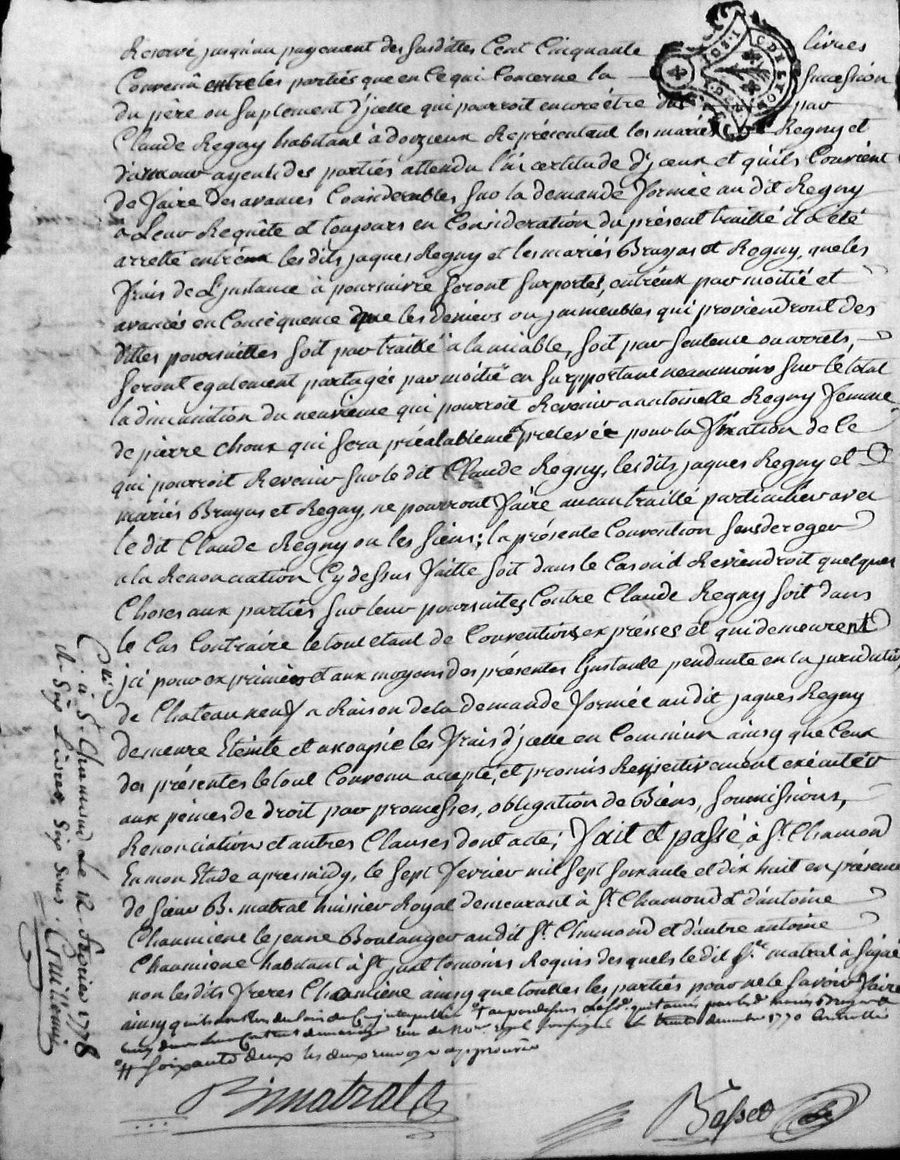 Reservé jusqu'au payement des susdittes Cent Cinquante livres
Convenu entre les parties que en ce qui Concerne la succession
du père ou suplement d'jcelle qui pourroit encore être par
Claude Regny habitant à doizieux Représentant les mariés Regny et
damour ayents des parties attendu l'incertitude d'jceux et quils Convient
de faire des avances Considerables sur la demande formée au dit Regny
a Leur Requête et toujours en Considération du présent traitté il a été
arretté entréux les dits jaques Regny et les mariés Bruyas et Regny, que les
frais de L'jnstance à poursuivre seront suportés, entréux par moitié et
avancés en Conséquence que les deniers ou jmmeubles qui proviendront des
dittes poursuittes soit par traitté à la miable, soit par sentence ou arrets,
seront egalement partagés par moitié en supportant neanmoins sur le total
la diminution du neuvieme qui pourroit Revenir a antoinette Regny femme
de pierre choux qui sera préalablemt prelevée pour la fixation de ce
qui pourroit Revenir sur le dit Claude Regny, les dits jaques Regny et
mariés Bruyas et Regny, ne pourront faire aucun traitté particulier avec
le dit Claude Regny ou les siens; la présente Convention sans deroger
a la Renonciation Cy dessus faitte soit dans le Cas ou il Reviendroit quelques
Choses aux parties sur leur poursuites Contre Claude Regny soit dans
le Cas Contraire le tout etant de Conventions expresses et qui demeurent
jci pour exprimées et aux moyens des présentes L'jnstance pendante en la juridiction
de Chateauneuf a Raison de la demande formée au dit jaques Regny
demeure Eteinte et assoupie les frais d'jcelle en Commun ainsy que Ceux
des présentes le tout Convenu accepté, et promis Respectivement exécuter
aux peines de droit par promesses, obligation de Biens, soumissions,
Renonciations et autres Clauses dont acte; fait et passé, à St. Chamond
En mon Etude apres midy, le sept fevrier mil sept soixante et dix huit en présence
de sieur B. matrat huissier Royal demeurant à St. Chamond & d'antoine
Chaumiene le jeune Boulanger au dit St. Chamond et d'autre antoine
Chaumiene habitant à St. just temoins Requis des quels le dit Sr. matrat à signé
non les dits freres Chaumiene ainsy que touttes les parties pour ne le savoir faire
soixante deux les deux renvoy approuvés
B. matrat
Besset
à St. Chamond Le 12 fevrier 1778
six Livres six sous